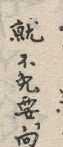 就不免要向